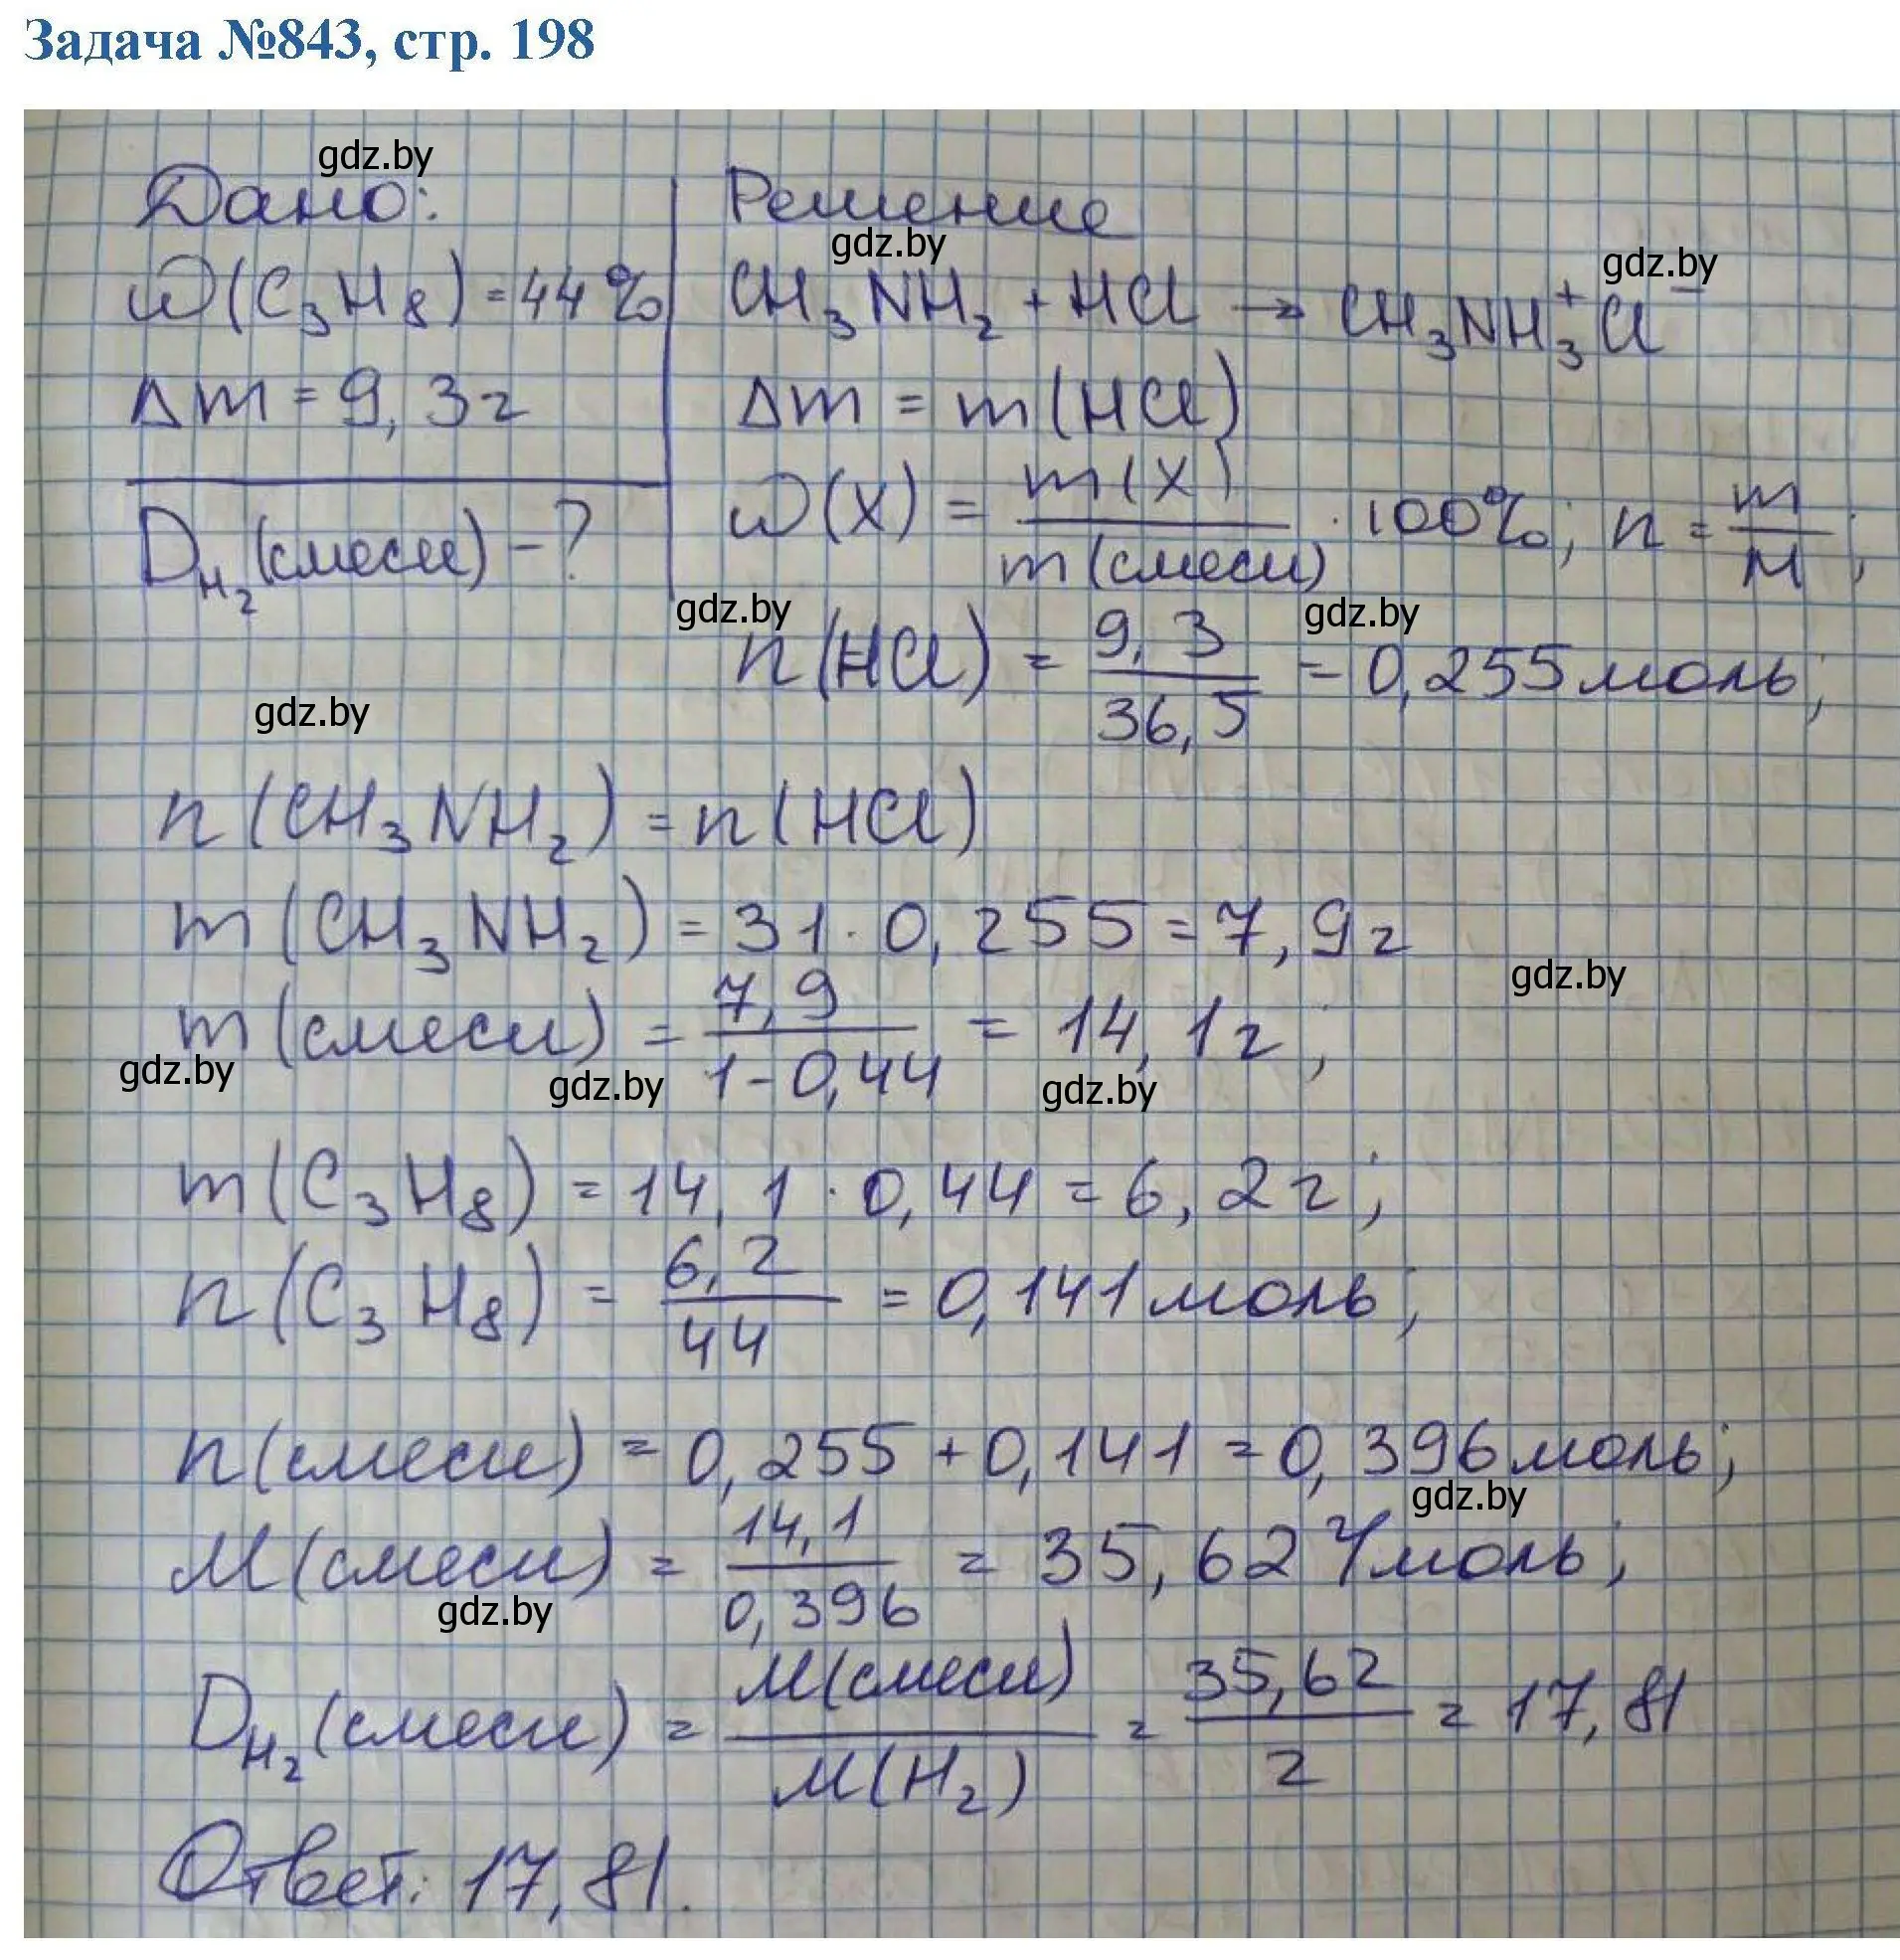 Задача №843, стр. 198
gdz.by
Дано:
ω(C₃H₈) = 44%
Δm = 9,3г
D_H₂(смеси) - ?
Решение
gdz.by
gdz.by
CH₃NH₂ + HCl → CH₃NH₃⁺Cl⁻
Δm = m(HCl)
ω(X) = m(X) / m(смеси) · 100%; n = m / M;
gdz.by
gdz.by
n(HCl) = 9,3 / 36,5 = 0,255 моль;
gdz.by
n(CH₃NH₂) = n(HCl)
m(CH₃NH₂) = 31 · 0,255 = 7,9г
gdz.by
m(смеси) = 7,9 / 1-0,44 = 14,1г;
gdz.by
gdz.by
gdz.by
m(C₃H₈) = 14,1 · 0,44 = 6,2г;
n(C₃H₈) = 6,2 / 44 = 0,141 моль;
n(смеси) = 0,255 + 0,141 = 0,396 моль;
gdz.by
M(смеси) = 14,1 / 0,396 = 35,62 г/моль;
gdz.by
D_H₂(смеси) = M(смеси) / M(H₂) = 35,62 / 2 = 17,81
Ответ: 17,81.